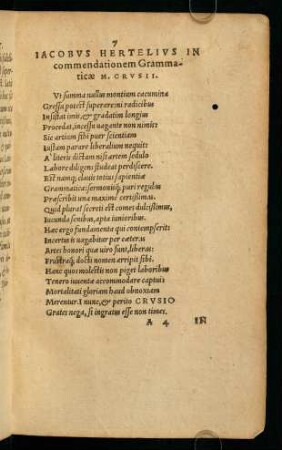 7
IACOBVS HERTELIVS IN
commendationem Gramma-
ticæ M. CRVSII.
Vt summa nullus montium cacumina
Gressu potest superare: ni radicibus
Insistat imis, & gradatim longius
Procedat, incessu uagante non nimis:
Sic artium sibi puer scientiam
Iustam parare liberalium nequit:
A' literis dictam nisi artem sedulo
Labore diligens studeat perdiscere.
Est namq; clauis totius sapientiæ
Grammatica: sermonisq; puri regulam
Præscribit una maximè certissimam.
Quid plura? secreti est comes dulcissimus,
Iucunda senibus, apta iunioribus.
Hæc ergo fundamenta qui contempserit:
Incertus is uagabitur per cætera:
Artes honori quæ uiro sunt, liberas:
Frustraq; docti nomen arripit sibi.
Hanc quos molestiis non piget laboribus
Tenero iuuentæ accommodare captui:
Mortalitati gloriam haud obnoxiam
Merentur. I nunc, & perito CRVSIO
Grates nega, si ingratus esse non times.
A 4 IN